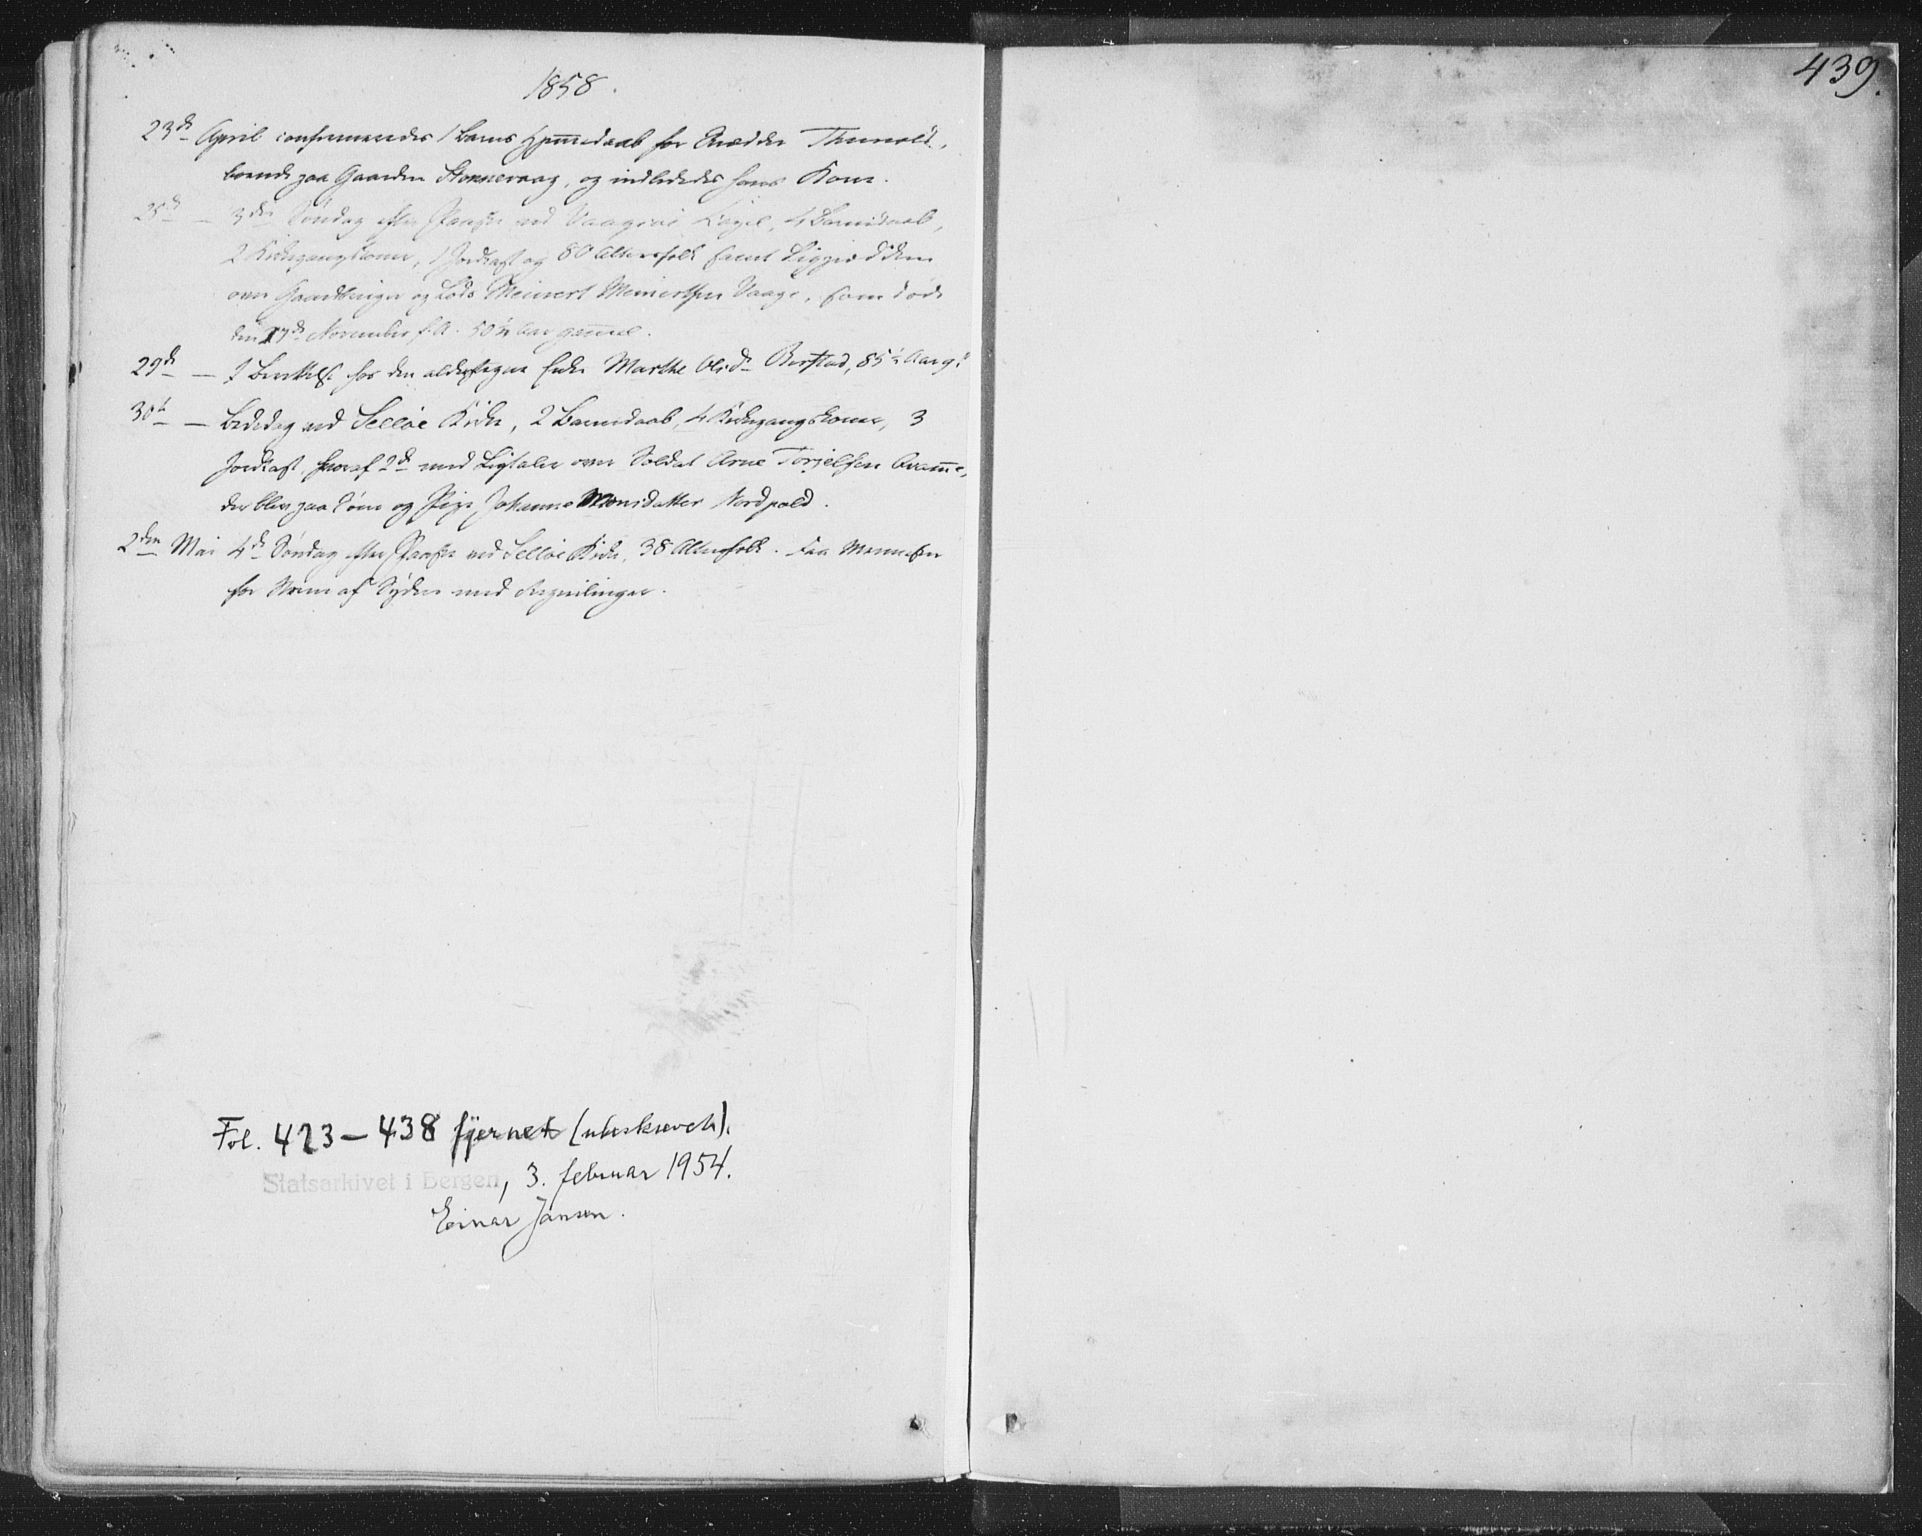 1858.
23de April confirmeredes 1 Barns Hjemmedaab for Thunold,
boende paa Gaarden Stonnevaag, og indlededes hans Kone.
25de — 3die Søndag efter Paaske ved Vaagsøe Capel, 4 Barnedaab,
2 Kirkegangskoner, 1 Jordkast og 80 Altersfolk samt
over Gaardbruger og Lods Meinert Meinertsen Vaage, som døde
den 17de November f. A. 50½ Aar gammel.
29de — 1 Berettelse hos den alderstegne Enke Marthe Olsdr Berstad, 85½ Aar gl.
30te — Bededag ved Selløe Kirke, 2 Barnedaab, 4 Kirkegangskoner, 3
Jordkast, hvoraf 2de med Ligtaler over Soldat Arne Torjelsen
der blev paa Søen og Pige Johanne Monsdatter Nordpold.
2den Mai 4de Søndag efter Paaske ved Selløe Kirke, 38 Altersfolk. Faa Mennesker
for Storm af Syden med
Fol. 423—438 fjernet (ubeskrevet).
Statsarkivet i Bergen, 3. februar 1954.
Einar Jansen.
439.